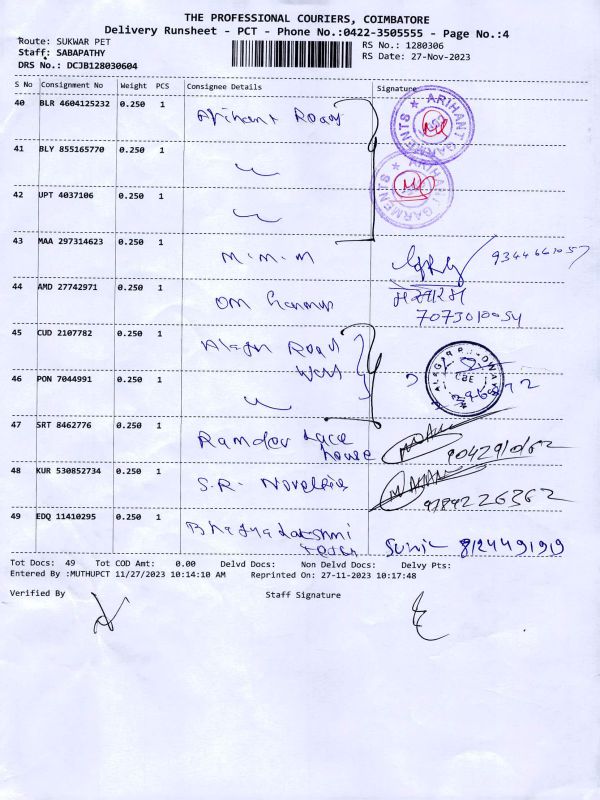 THE PROFESSIONAL COURIERS, COIMBATORE
Delivery Runsheet - PCT - Phone No.:0422-3505555 - Page No.:4
Route: SUKWAR PET
RS No.: 1280306
Staff: SABAPATHY
RS Date: 27-Nov-2023
DRS No.: DCJB128030604
S No Consignment No Weight PCS Consignee Details Signature
40 BLR 4604125232 0.250 1 Arihant Road
ARIHANT GARMENTS
41 BLY 855165770 0.250 1
ARIHANT GARMENTS
42 UPT 4037106 0.250 1
43 MAA 297314623 0.250 1 M.M.M 9344661057
44 AMD 27742971 0.250 1 OM
7073010054
45 CUD 2107782 0.250 1 Road
CBE
46 PON 7044991 0.250 1
47 SRT 8462776 0.250 1 Ramdev Lace
House
48 KUR 530852734 0.250 1 S.R. Novelties
9789226362
49 EDQ 11410295 0.250 1 Bhagyalakshmi
Sunil 8124491919
Tot Docs: 49 Tot COD Amt: 0.00 Delvd Docs: Non Delvd Docs: Delvy Pts:
Entered By :MUTHUPCT 11/27/2023 10:14:10 AM Reprinted On: 27-11-2023 10:17:48
Verified By Staff Signature